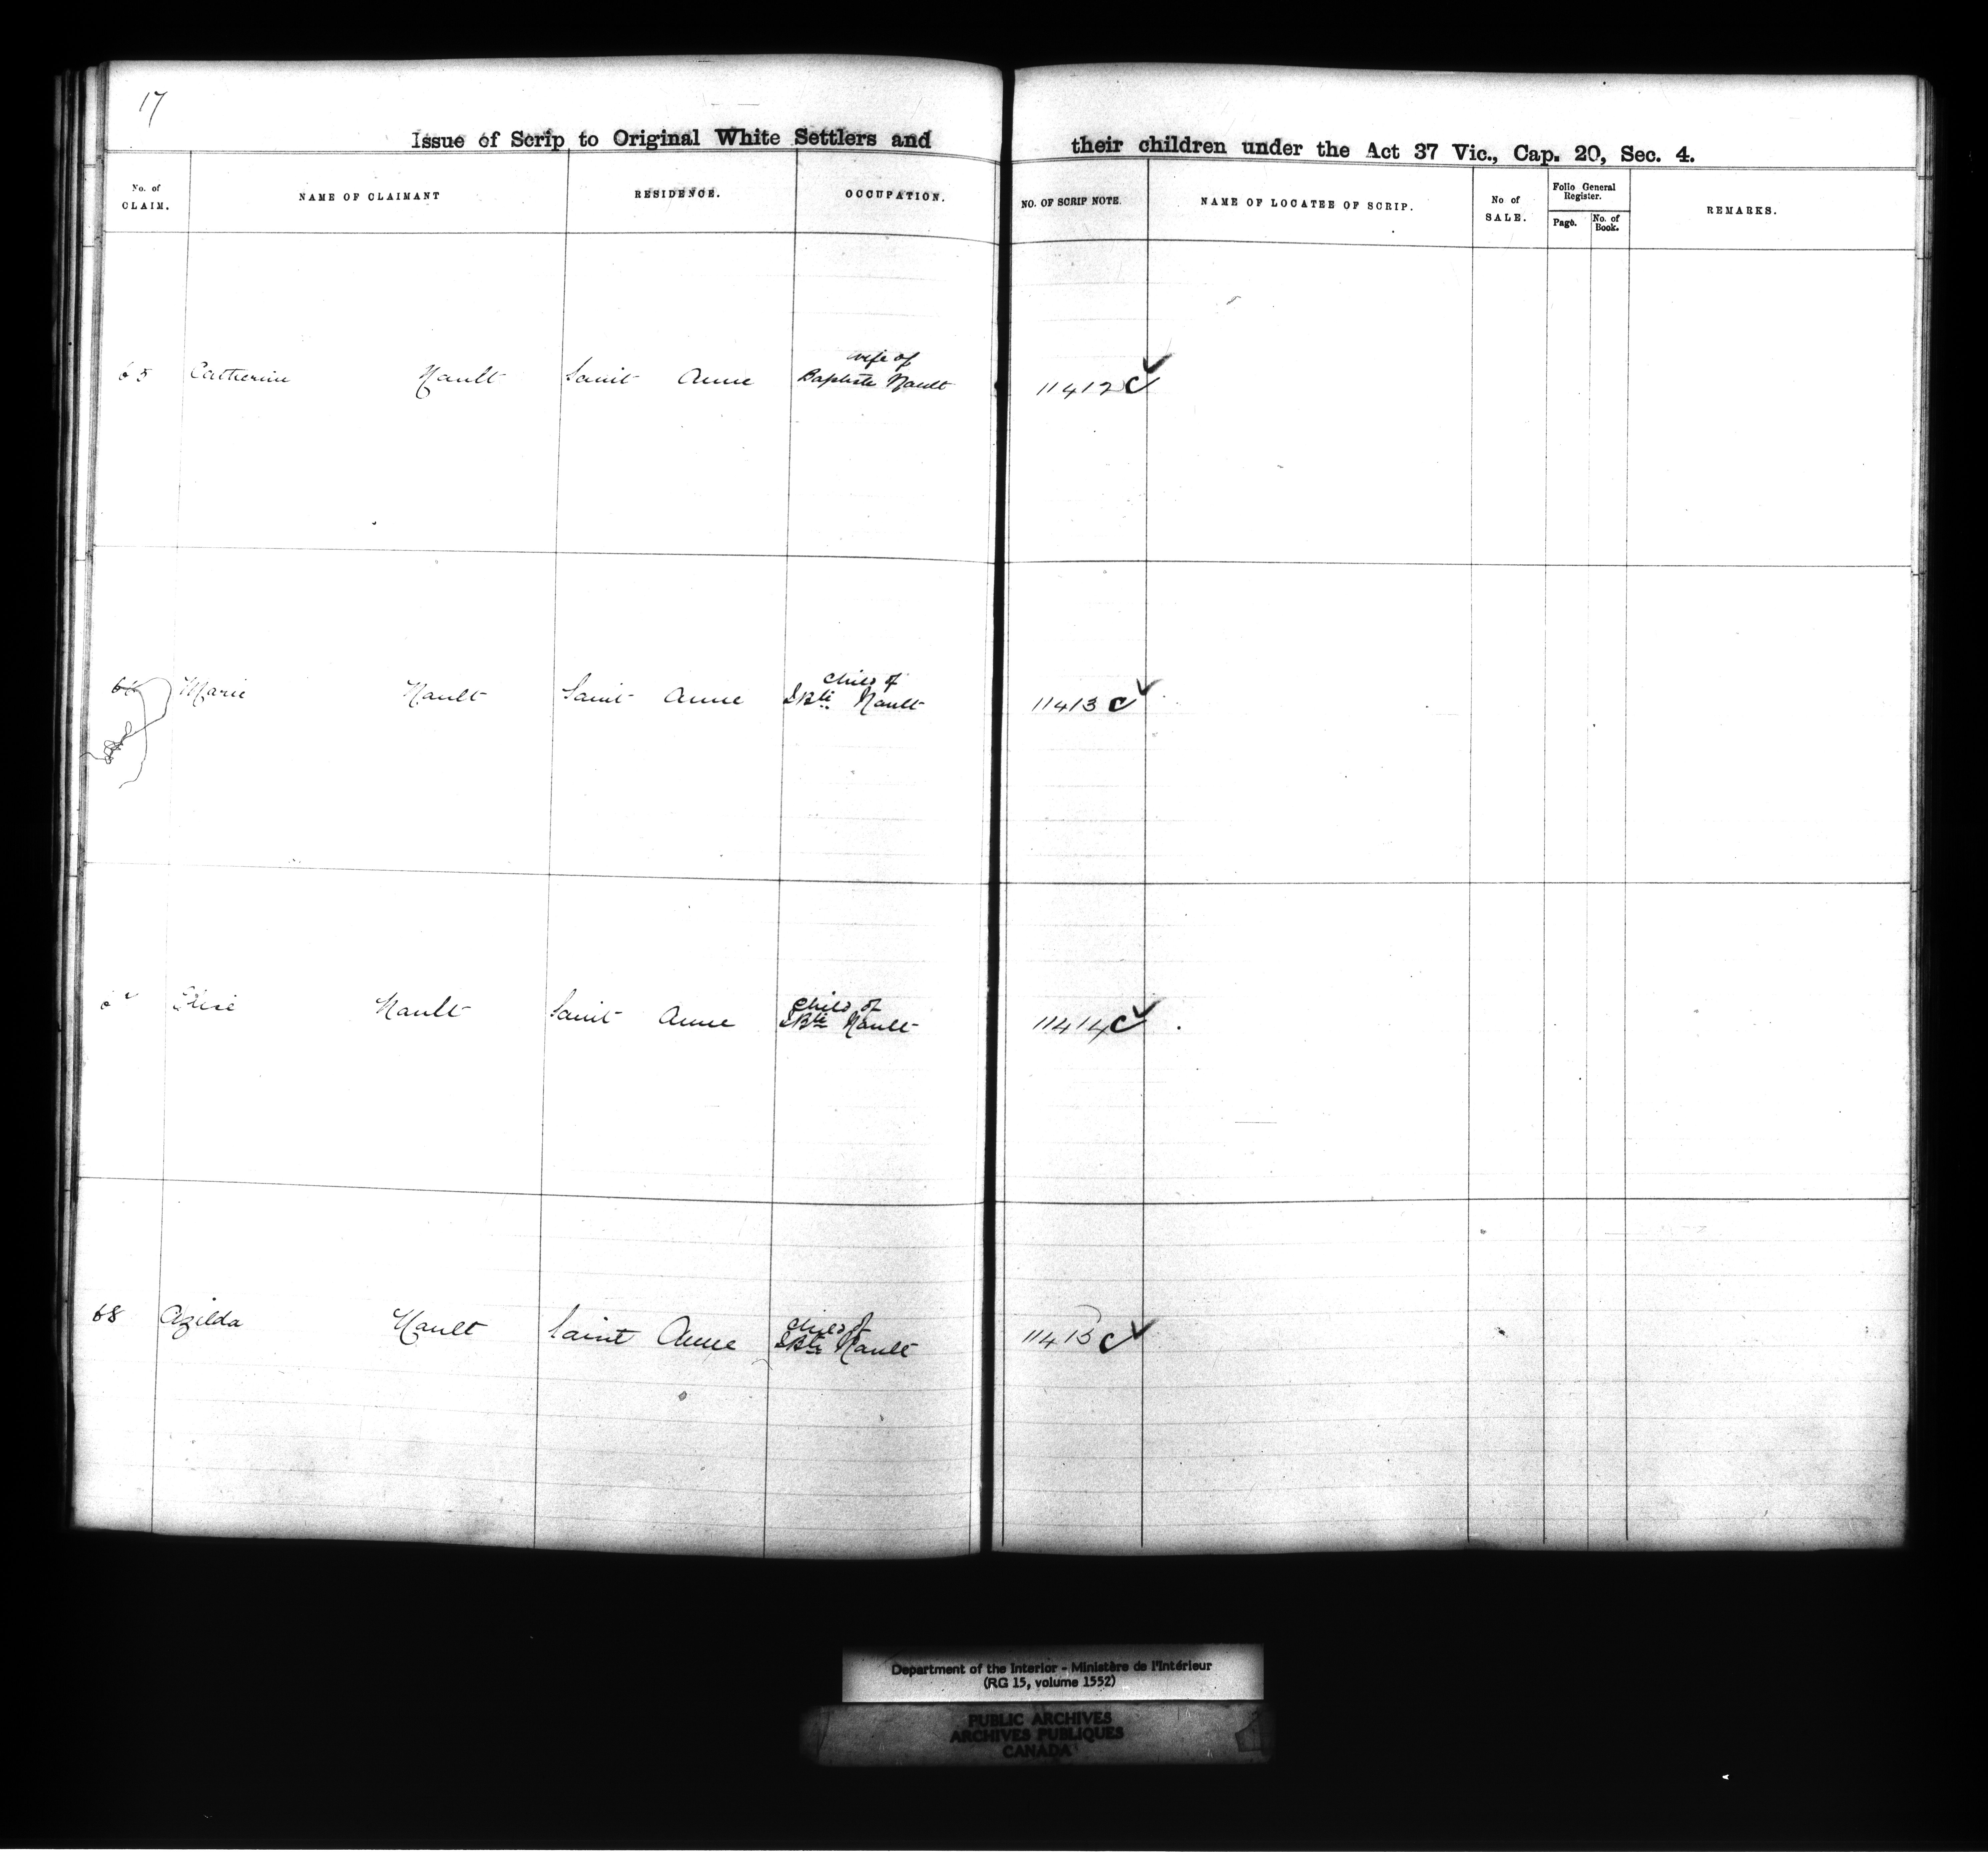 17
Issue of Scrip to Original White Settlers and their children under the Act 37 Vic., Cap. 20, Sec. 4.
No. of CLAIM. NAME OF CLAIMANT RESIDENCE. OCCUPATION. NO. OF SCRIP NOTE. NAME OF LOCATEE OF SCRIP. No of SALE. Folio General Register. Page. No. of Book. REMARKS.
wife of
65 Catherine Nault Saint Anne Baptiste Nault 11412 C
child of
Marie Nault Saint Anne J Bte Nault 11413 C
child of
Elise Nault Saint Anne J Bte Nault 11414 C
child of
68 Azilda Nault Saint Anne J Bte Nault 11415 C
Department of the Interior - Ministère de l'Intérieur
(RG 15, volume 1552)
PUBLIC ARCHIVES
ARCHIVES PUBLIQUES
CANADA